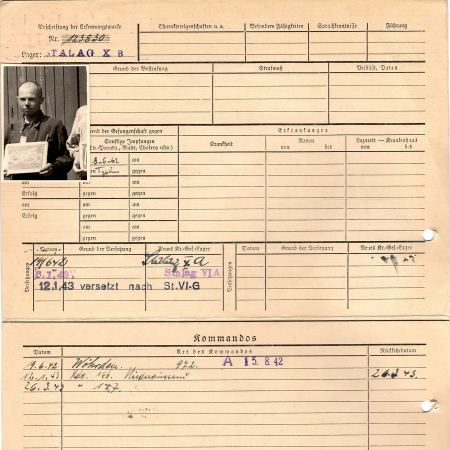 Beschriftung der Erkennungsmarke
Nr. 123630
Lager: STALAG X B
Charaktereigenschaften u. a.
Besondere Fähigkeiten
Sprachkenntnisse
Führung
Grund der Bestrafung
Strafmaß
Verbüßt, Datum
rend der Gefangenschaft gegen
Erkrankungen
Sonstige Impfungen
(Paratu., Ruhr, Cholera usw.)
Krankheit
Revier
von bis
Lazarett — Krankenhaus
von bis
9.6.42
am
gegen
am am
gegen gegen
Erfolg am
am gegen
Erfolg am
gegen
am am
gegen gegen
Datum
Grund der Versetzung
Neues Kr.-Gef.-Lager
Datum
Grund der Versetzung
Neues Kr.-Gef.-Lager
Versetzungen
Versetzungen
Stalag X A
Stalag VI A
12.1.43 versetzt nach St.VI-G
Kommandos
Datum
Art des Kommandos
Rückkehrdatum
9.6.42 Wöhrden. 972. A 15.8.42
12.1.43 146.
26.3.43
26.3.43 "